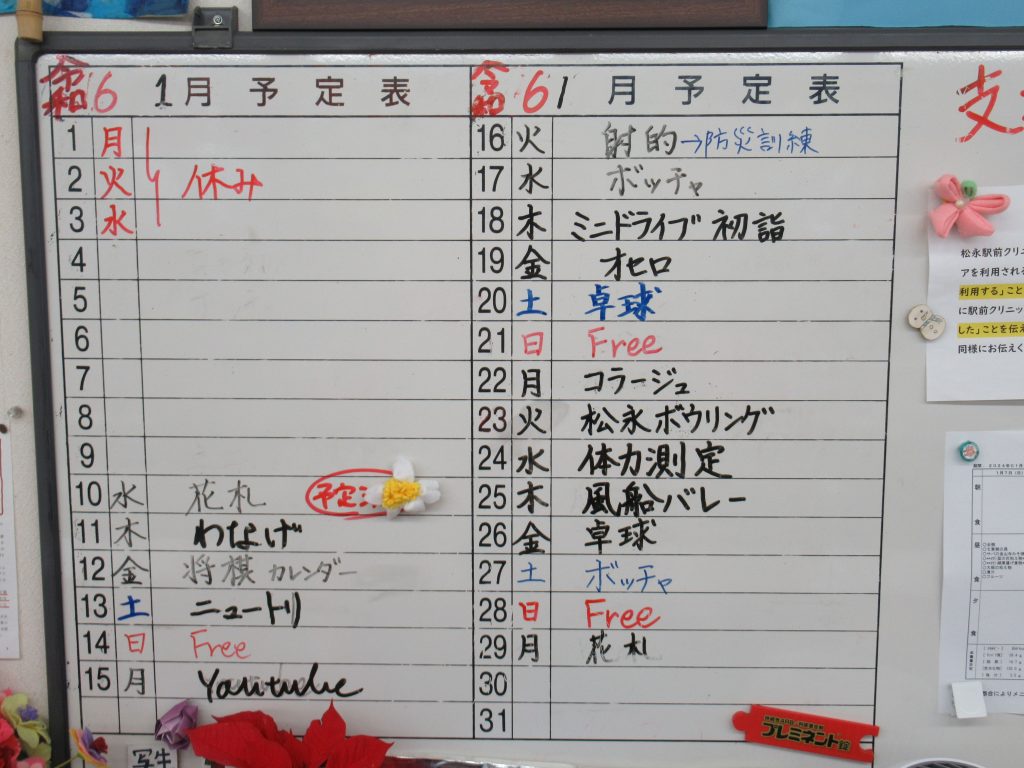 令和6 1月予定表
1 月
2 火 休み
3 水
4
5
6
7
8
9
10 水 花札 予定
11 木 わなげ
12 金 将棋 カレンダー
13 土 ニュートリ
14 日 Free
15 月 Youtube
令和6 1月予定表
16 火 射的→防災訓練
17 水 ボッチャ
18 木 ミニドライブ 初詣
19 金 オセロ
20 土 卓球
21 日 Free
22 月 コラージュ
23 火 松永ボウリング
24 水 体力測定
25 木 風船バレー
26 金 卓球
27 土 ボッチャ
28 日 Free
29 月 花札
30
31
支
松永駅前クリニ
アを利用される
利用する」こと
に駅前クリニッ
した」ことを伝え
同様にお伝えく
プレミネント錠
写生